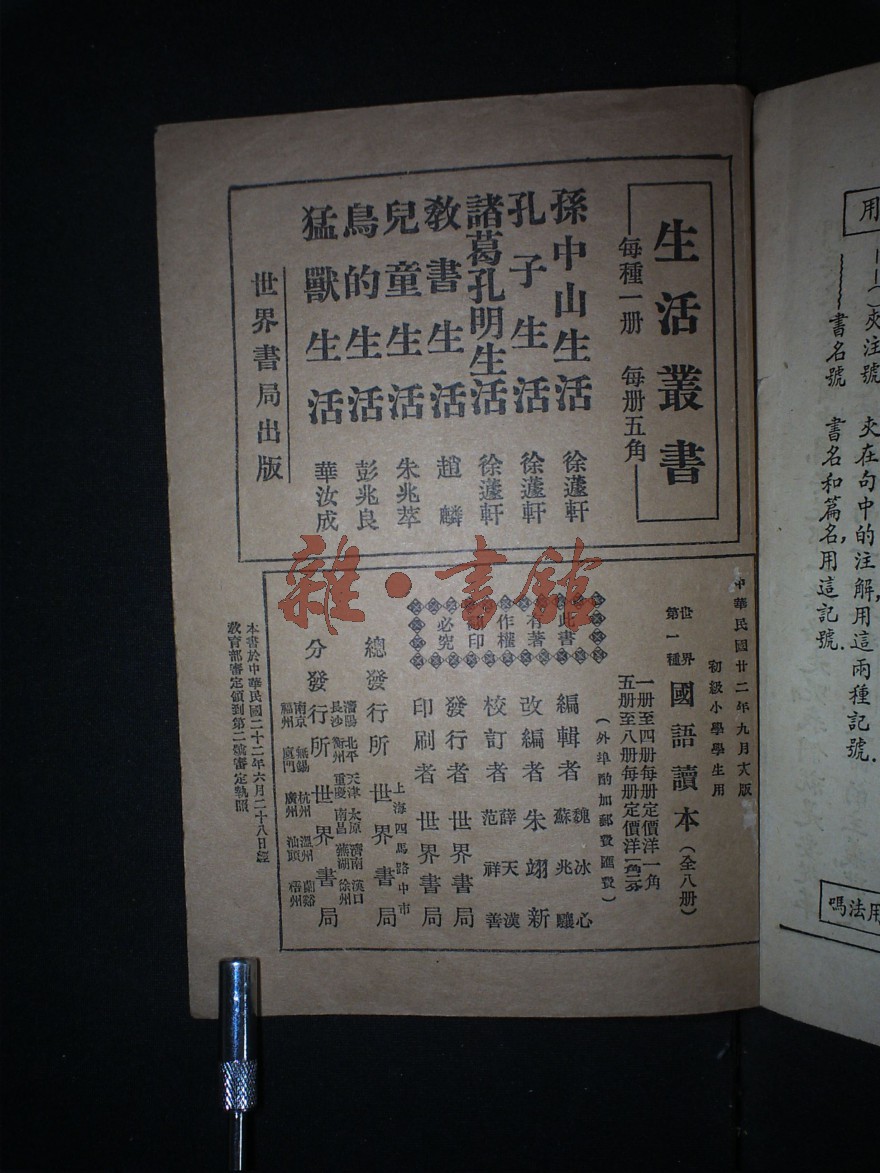 生活叢書
每種一册　每册五角
孫中山生活　徐蘧軒
孔子生活　徐蘧軒
諸葛孔明生活　徐蘧軒
教書生活　趙麟
兒童生活　朱兆萃
鳥的生活　彭兆良
猛獸生活　華汝成
世界書局出版
中華民國廿二年九月
初級小學學生用
世界第一種　國語讀本（全八册）
一册至四册每册定價洋一角
五册至八册每册定價洋
（外埠酌加郵費匯費）
此書有著作權翻印必究
編輯者　魏冰心　蘇兆驤
改編者　朱翊新
校訂者　薛天漢　范祥善
發行者　世界書局
印刷者　世界書局
上海四馬路中市
總發行所　世界書局
分發行所　世界書局
瀋陽　北平　天津　太原　濟南　漢口
長沙　衡州　重慶　南昌　蕪湖　徐州
南京　無錫　杭州　溫州　蘭谿
福州　廈門　廣州　汕頭　梧州
本書於中華民國二十二年六月二十八日經
教育部審定領到第二號審定執照
雜·書館
用
（）夾注號　夾在句中的注解,用這兩種記號.
書名號　書名和篇名,用這記號.
用法嗎